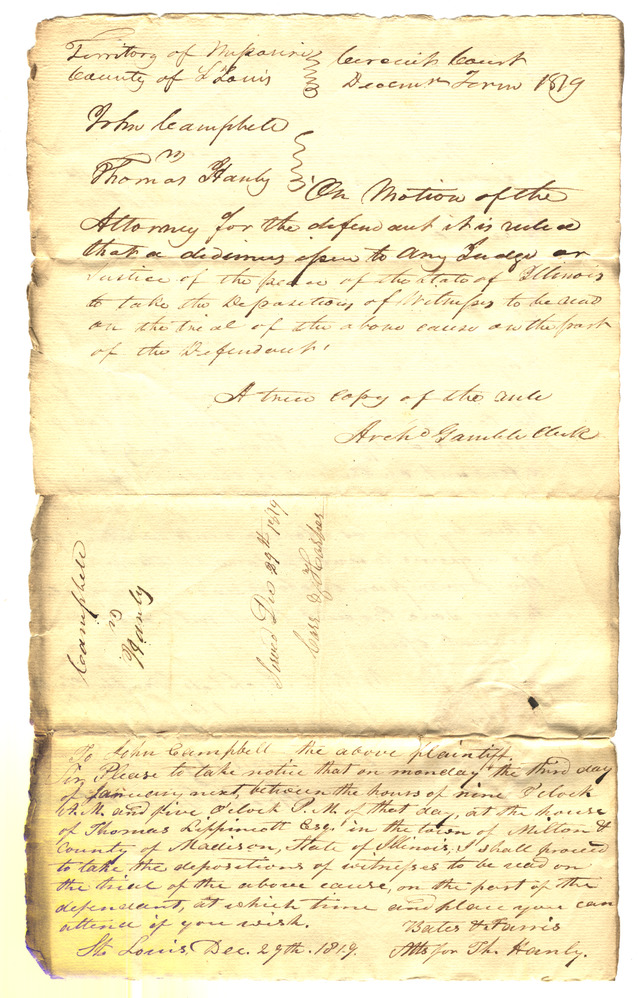 Territory of Missouri } Circuit Court
County of St Louis } Decemr Term 1819
John Campbell
vs
Thomas Hanly } On Motion of the
Attorney for the defendant it is ruled
that a dedimus issue to any Judge or
Justice of the peace of the state of Illinois
to take the Depositions of Witnesses to be read
on the trial of the above cause on the part
of the Defendant.
A true copy of the rule
Archd Gamble Clerk
Campbell
vs
Hanly
Dec 29th 1819
Carr &
To John Campbell the above plaintiff
Sir, Please to take notice that on monday the third day
of January next, between the hours of nine O'clock
A.M. and five O'clock P.M. of that day, at the house
of Thomas Lippincott Esq. in the town of Milton &
County of Madison, State of Illinois, I shall proceed
to take the depositions of witnesses to be read on
the trial of the above cause, on the part of the
defendant, at which time and place you can
attend if you wish.
Bates & Farris
St. Louis, Dec. 29th. 1819. Atts for Th. Hanly.